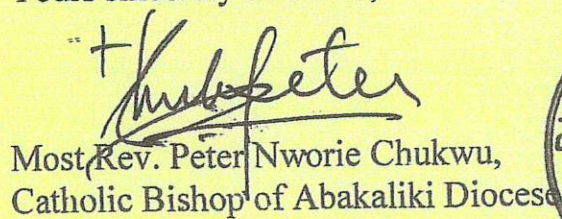 Most Rev. Peter Nworie Chukwu,
Catholic Bishop of Abakaliki Diocese